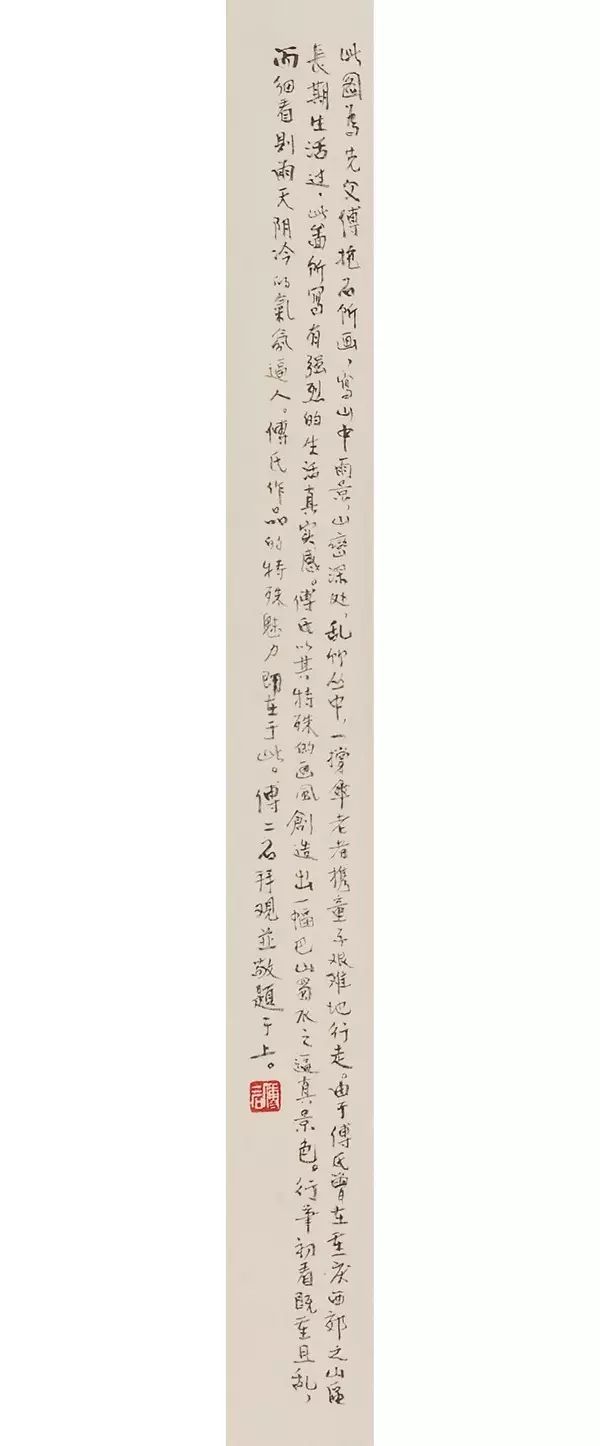 此圖为先父傅抱石所画，寫山中雨景，山峦深处，乱竹丛中，一撑傘老者携童子艰难地行走。由于傅氏曾在重庆西郊之山區
長期生活过，此圖所寫有强烈的生活真实感。傅氏以其特殊的画风創造出一幅巴山蜀水之逼真景色。行筆初看既重且乱，
而细看則雨天阴冷的氣氛逼人。傅氏作品的特殊魅力即在于此。傅二石拜观並敬題于上。